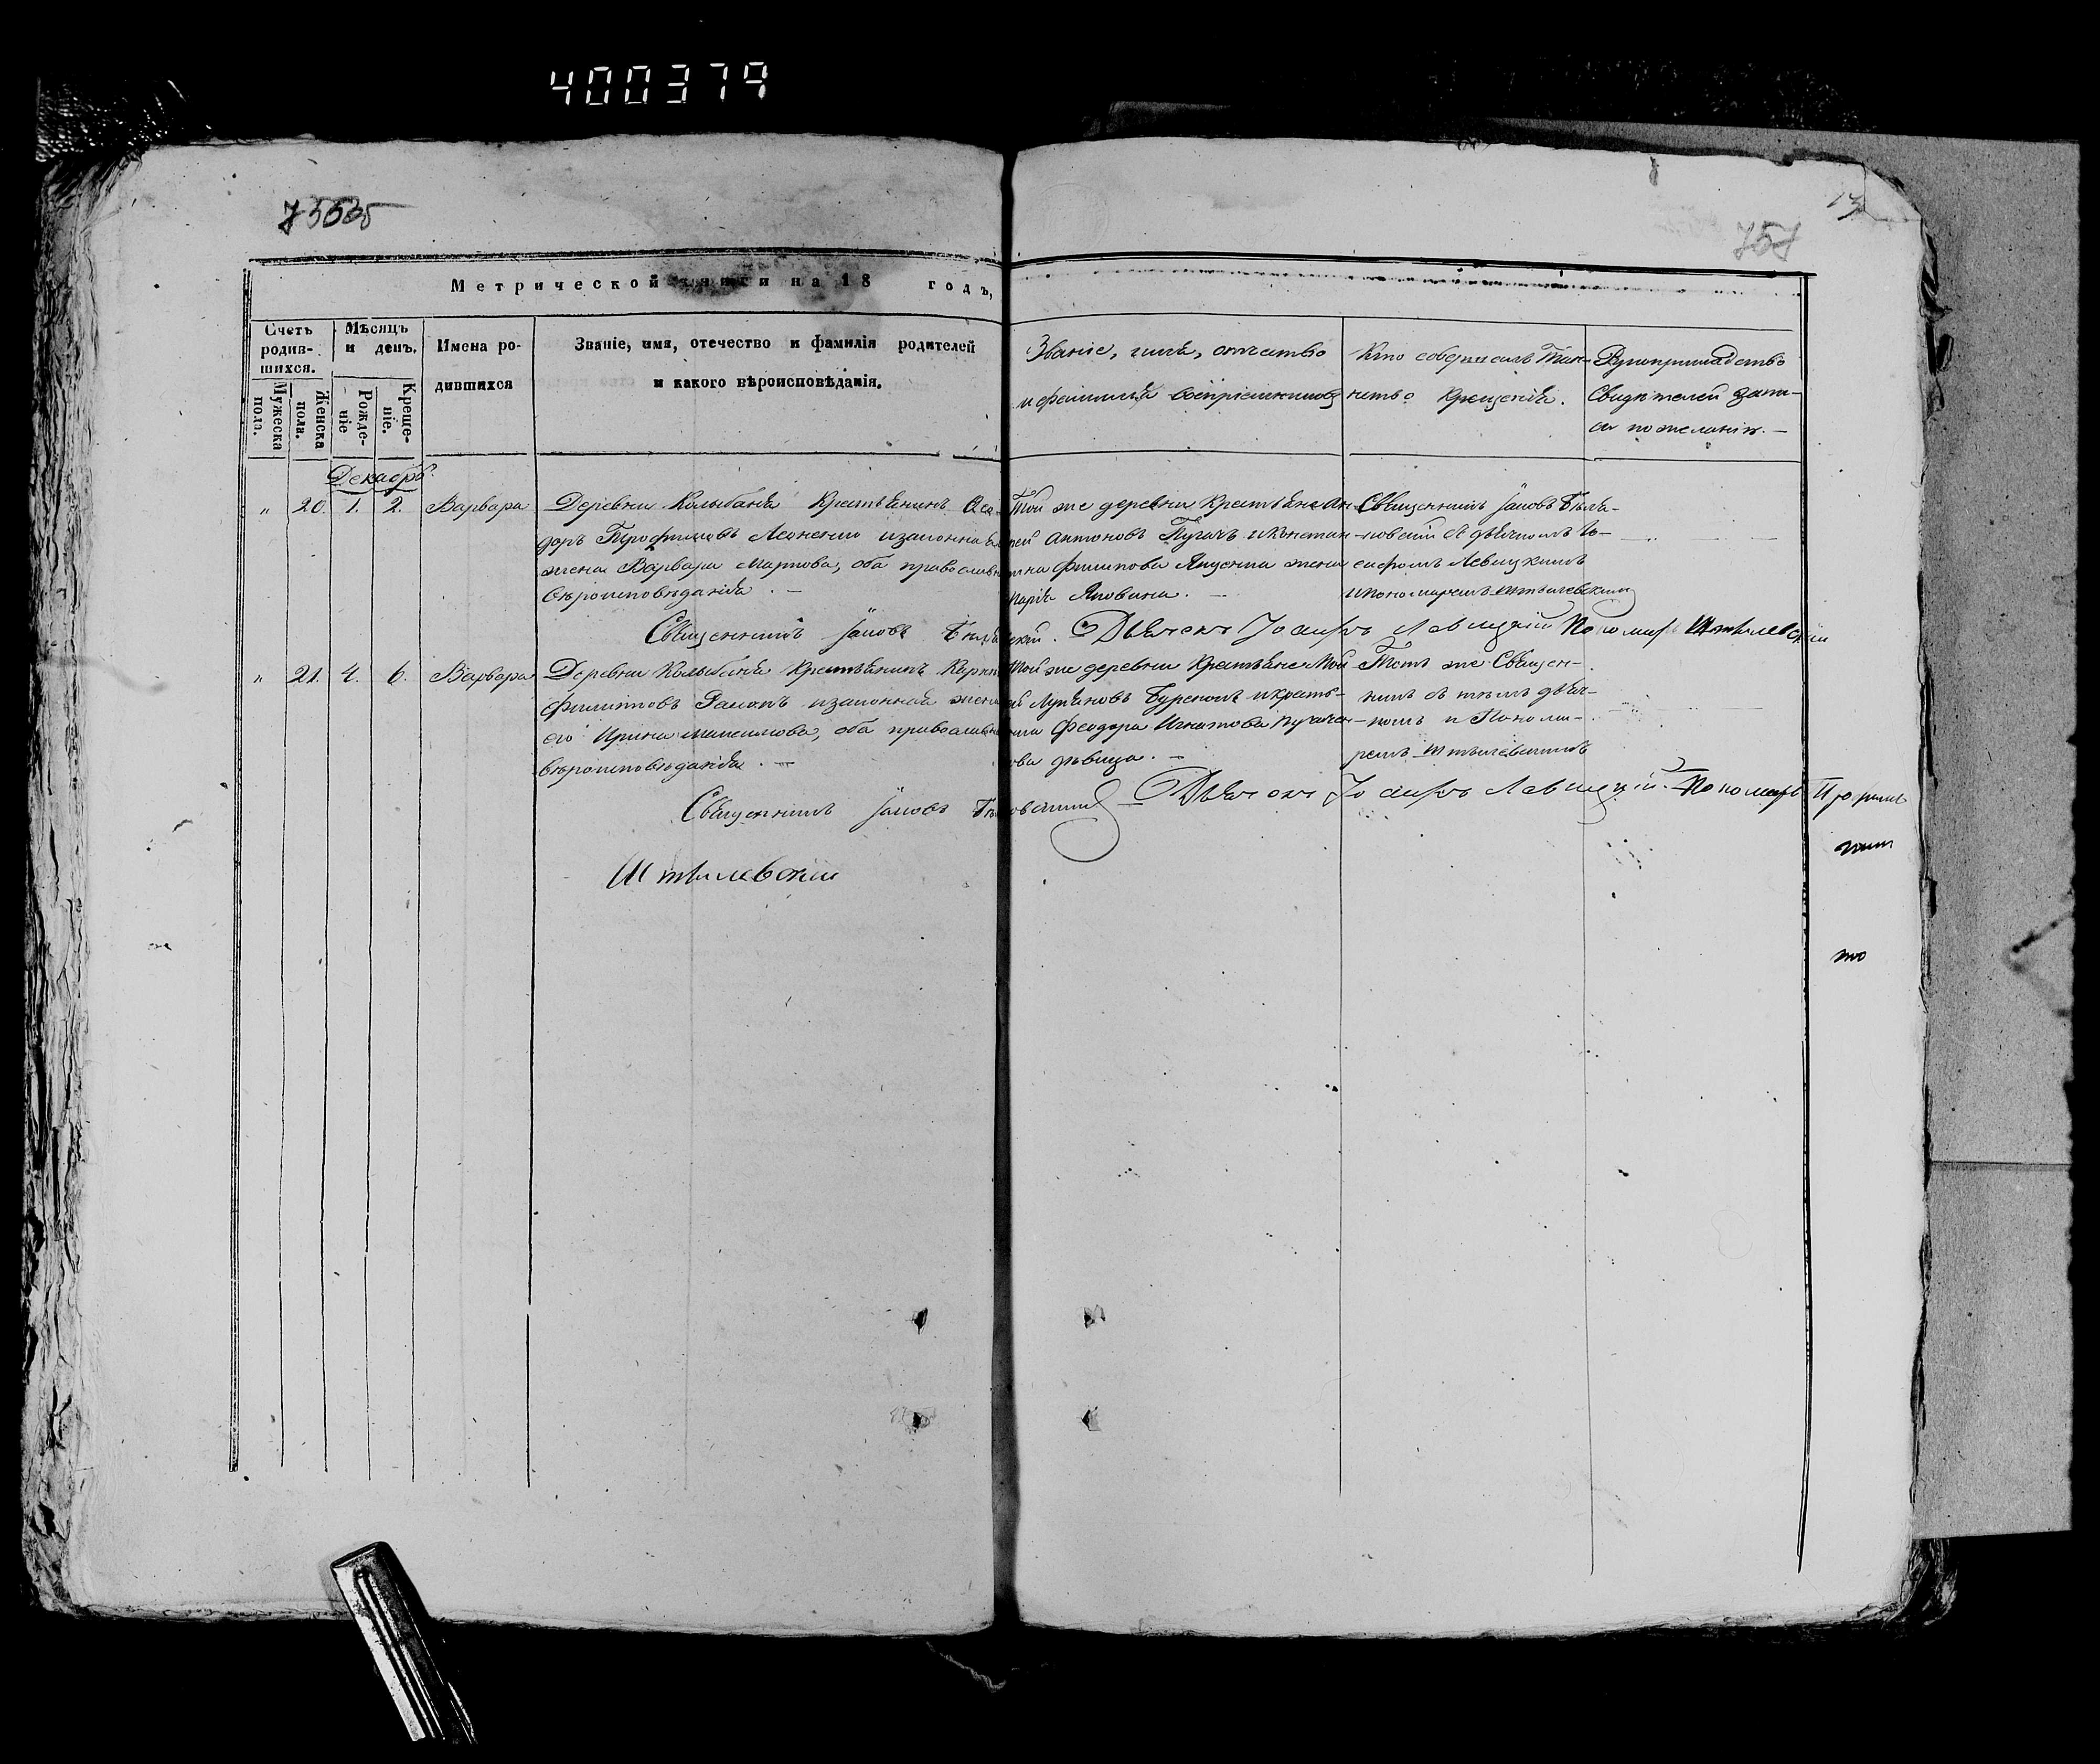 400379
757
Метрической книги на 18 годъ,
Счетъ родив-шихся.
Мужеска пола.
Женска пола.
Мѣсяцъ и день.
Рожде-ніе
Креще-ніе.
Имена ро-
дившихся
Званіе, имя, отечество и фамилія родителей
и какого вѣроисповѣданія.
Званіе, имя, отчество
и фамилія воспріемниковъ
Кто совершилъ Таин-
ство Крещенія.
Рукоприкладство
Свидѣтелей запи-
си по желанію. —
Декабрь.
„ 20. 1. 2. Варвара
Деревни Колыбани Крестьянинъ
доръ Трофимовъ Леоненко и законная
жена Варвара Маркова, оба православн
вѣроисповѣданія. —
Той же деревни Крестьяне Ан-
рей Антоновъ Пугачъ и Констан-
тина Филипова Яцуенка жена
Марія Яковина. —
Священникъ Іаковъ Бѣля-
новскій съ дьячкомъ Іо-
сифомъ Левицкимъ
и пономаремъ Штылевскимъ
Священникъ Іаковъ
скій. Дьячокъ Іосифъ Левицкій Пономарь Штылевскій
„ 21. 4. 6. Варвара
Деревни Колыбани Крестьянинъ Карпъ
Филиповъ и законная жена
его Ирина Максимова, оба православн
вѣроисповѣданія. —
Той же деревни Крестьяне Мой-
ей Лукяновъ Буренокъ и кресть-
янка Феодора Игнатова Пугаче-
ова дѣвица. —
Тотъ же Священ-
никъ съ тѣмъ дьяч-
комъ и Понома-
ремъ Штылевскимъ
Священникъ Іаковъ
Дьячокъ Іосифъ Левицкій. Пономарь
Штылевскій